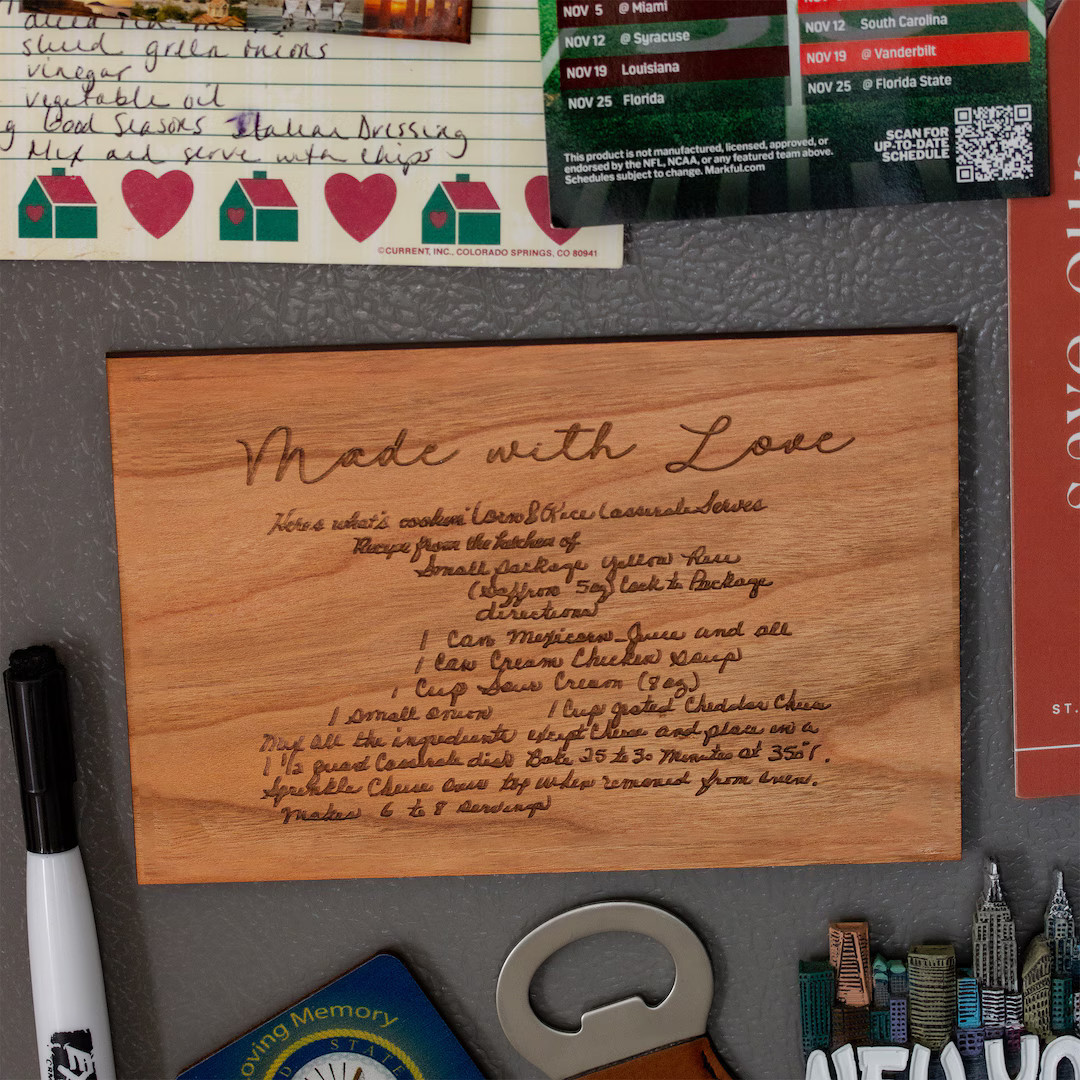 shced green onions
vinegar
vegetable oil
g Good Seasons Italian Dressing
Mix and serve with chips
©CURRENT, INC., COLORADO SPRINGS, CO 80941
NOV 5 @ Miami
NOV 12 @ Syracuse
NOV 19 Louisiana
NOV 25 Florida
NOV 12 South Carolina
NOV 19 @ Vanderbilt
NOV 25 @ Florida State
This product is not manufactured, licensed, approved, or
endorsed by the NFL, NCAA, or any featured team above.
Schedules subject to change. Markful.com
SCAN FOR
UP-TO-DATE
SCHEDULE
Made with Love
Here's what's cookin' Corn & Rice Casserole Serves
Recipe from the kitchen of
Small package Yellow Rice
(Saffron 5oz) Cook to Package
directions
1 Can Mexicorn - Juice and all
1 Can Cream Chicken Soup
1 Cup Sour Cream (8 oz)
1 small onion 1 Cup grated Cheddar Cheese
Mix all the ingredients except Cheese and place in a
1 1/2 quart Casserole dish Bake 25 to 30 Minutes at 350°.
Sprinkle Cheese over top when removed from oven.
Makes 6 to 8 servings
ST.
oving Memory
STATE
NEW YO